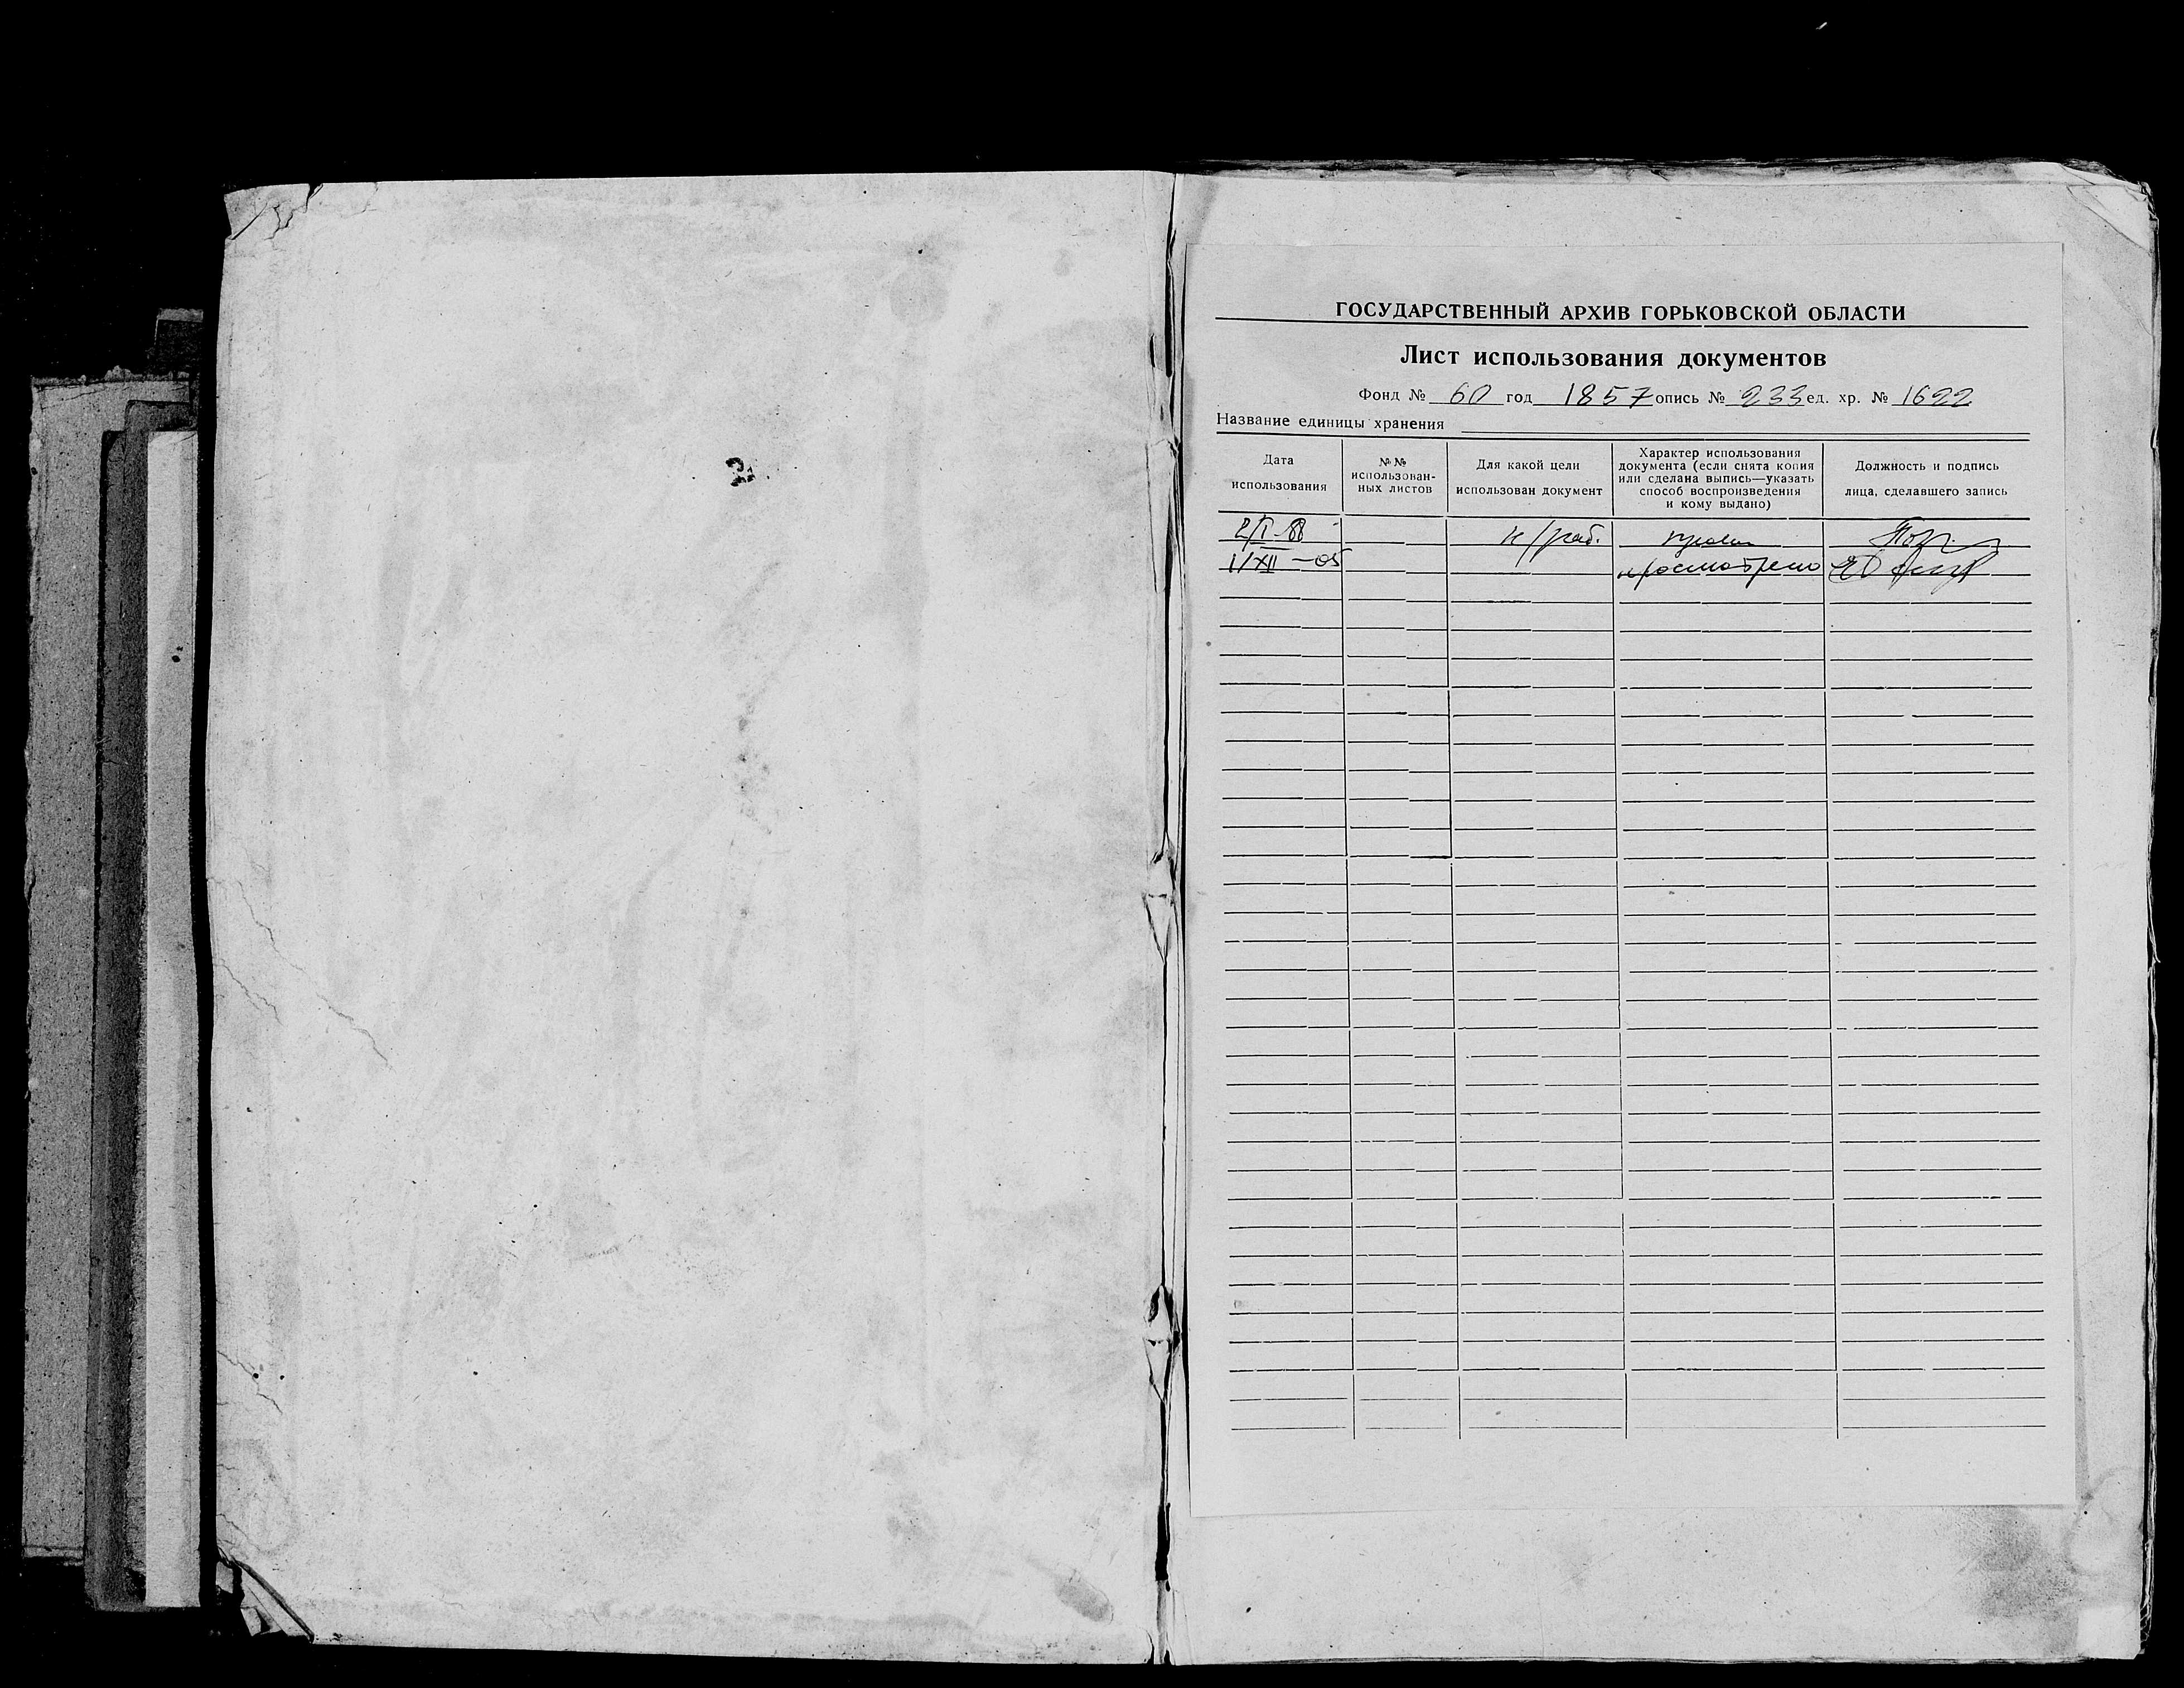 ГОСУДАРСТВЕННЫЙ АРХИВ ГОРЬКОВСКОЙ ОБЛАСТИ
Лист использования документов
Фонд № 60 год 1857 опись № 233 ед. хр. № 1622
Название единицы хранения
Дата использования
№№ использован-
ных листов
Для какой цели
использован документ
Характер использования
документа (если снята копия
или сделана выпись—указать
способ воспроизведения
и кому выдано)
Должность и подпись
лица, сделавшего запись
2/I-88 н/раб.
1/XII-05 просмотрено